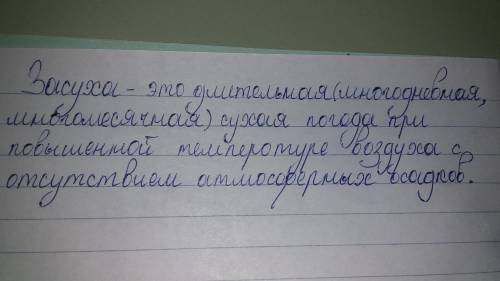 Засуха - это длительная (многодневная,
многомесячная) сухая погода при
повышенной температуре воздуха с
отсутствием атмосферных осадков.